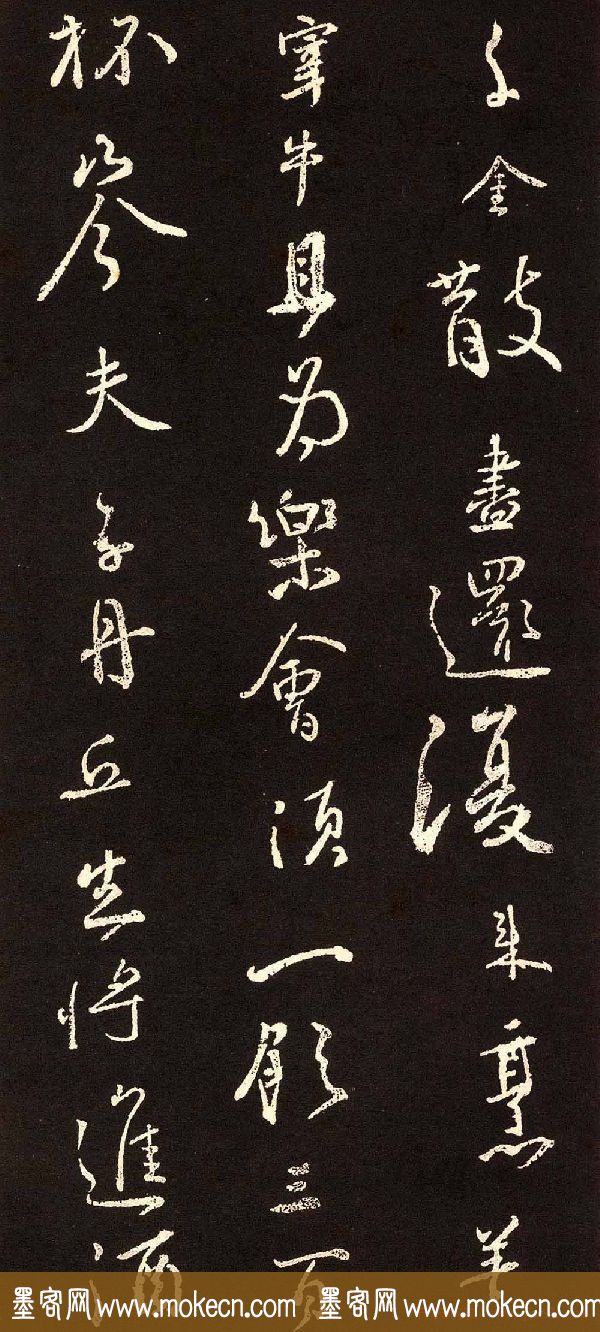 千金散盡還復来烹羊
宰牛且為樂會須一飲三百
杯岑夫子丹丘生将進酒
墨客网 www.mokecn.com 墨客网 www.mokecn.com